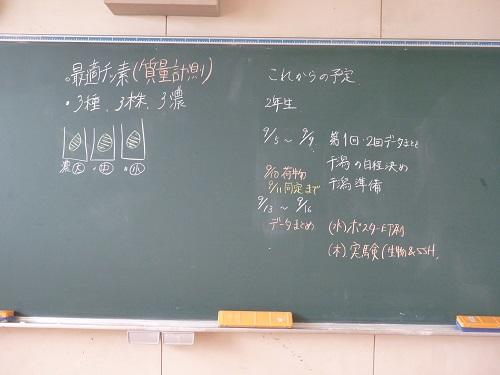 。最適チッ素(質量計測)
・3種、3株、3濃
濃大 ・中 ・小
これからの予定
2年生
9/5 ~ 9/9 第1回・2回データまとめ
干潟の日程決め
9/10 荷物
9/11 同定まで 干潟準備
9/13 ~ 9/16
データまとめ (水)ポスター印刷
(木)実験(生物&SSH